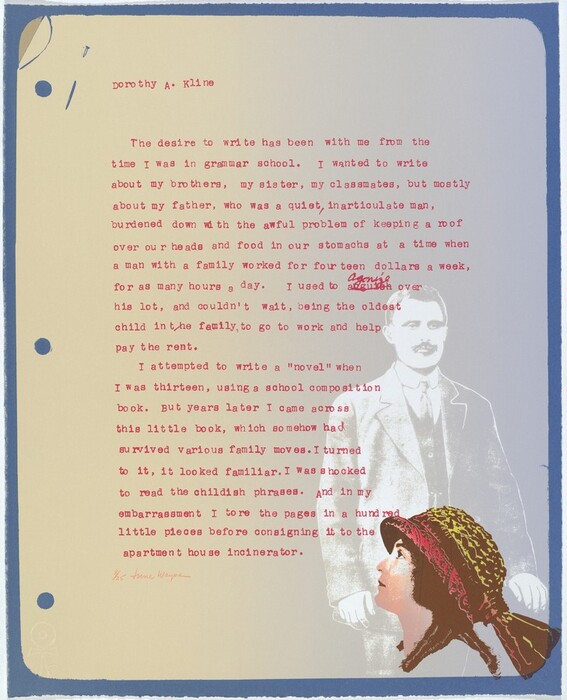 Dorothy A. Kline
The desire to write has been with me from the
time I was in grammar school. I wanted to write
about my brothers, my sister, my classmates, but mostly
about my father, who was a quiet, inarticulate man,
burdened down with the awful problem of keeping a roof
over our heads and food in our stomachs at a time when
a man with a family worked for fourteen dollars a week,
for as many hours a day. I used to agonize over
his lot, and couldn't wait, being the oldest
child in the family, to go to work and help
pay the rent.
I attempted to write a "novel" when
I was thirteen, using a school composition
book. But years later I came across
this little book, which somehow had
survived various family moves. I turned
to it, it looked familiar. I was shocked
to read the childish phrases. And in my
embarrassment I tore the pages in a hundred
little pieces before consigning it to the
apartment house incinerator.
June Wayne